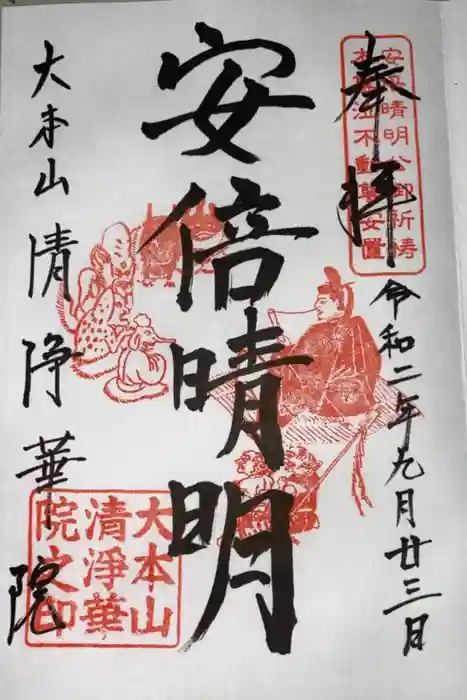 奉拝
令和二年九月廿三日
安倍晴明
大本山清浄華院
安倍晴明公御祈祷
不動
安置
大本山
清淨華
院之印